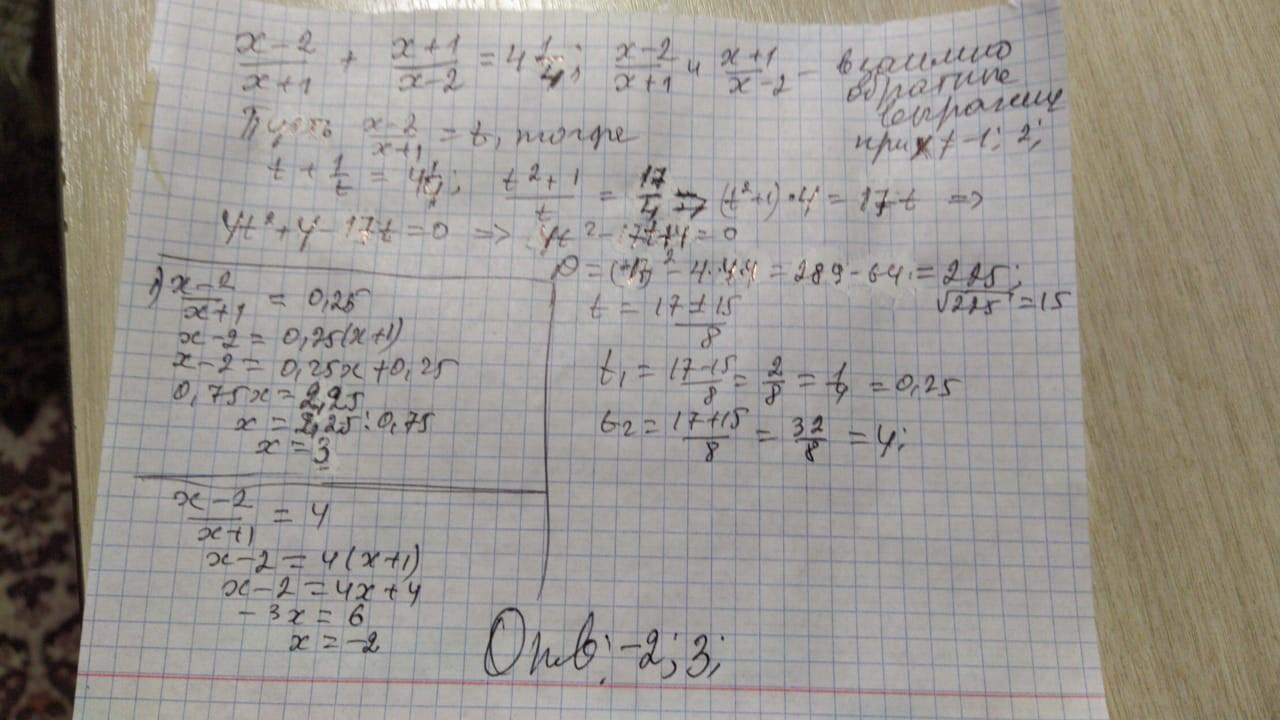 x-2/x+1 + x+1/x-2 = 4 1/4; x-2/x+1 и x+1/x-2 - взаимно
обратные
выражения
при x ≠ -1; 2;
Пусть x-2/x+1 = t, тогда
t + 1/t = 4 1/4; t²+1/t = 17/4 => (t²+1)·4 = 17t =>
4t²+4-17t=0 => 4t²-17t+4=0
D = (-17)² - 4·4·4 = 289-64 = 225; √225 = 15
t = 17±15/8
t₁ = 17-15/8 = 2/8 = 1/4 = 0,25
t₂ = 17+15/8 = 32/8 = 4;
1) x-2/x+1 = 0,25
x-2 = 0,25(x+1)
x-2 = 0,25x+0,25
0,75x = 2,25
x = 2,25:0,75
x = 3
x-2/x+1 = 4
x-2 = 4(x+1)
x-2 = 4x+4
-3x = 6
x = -2
Отв: -2; 3;